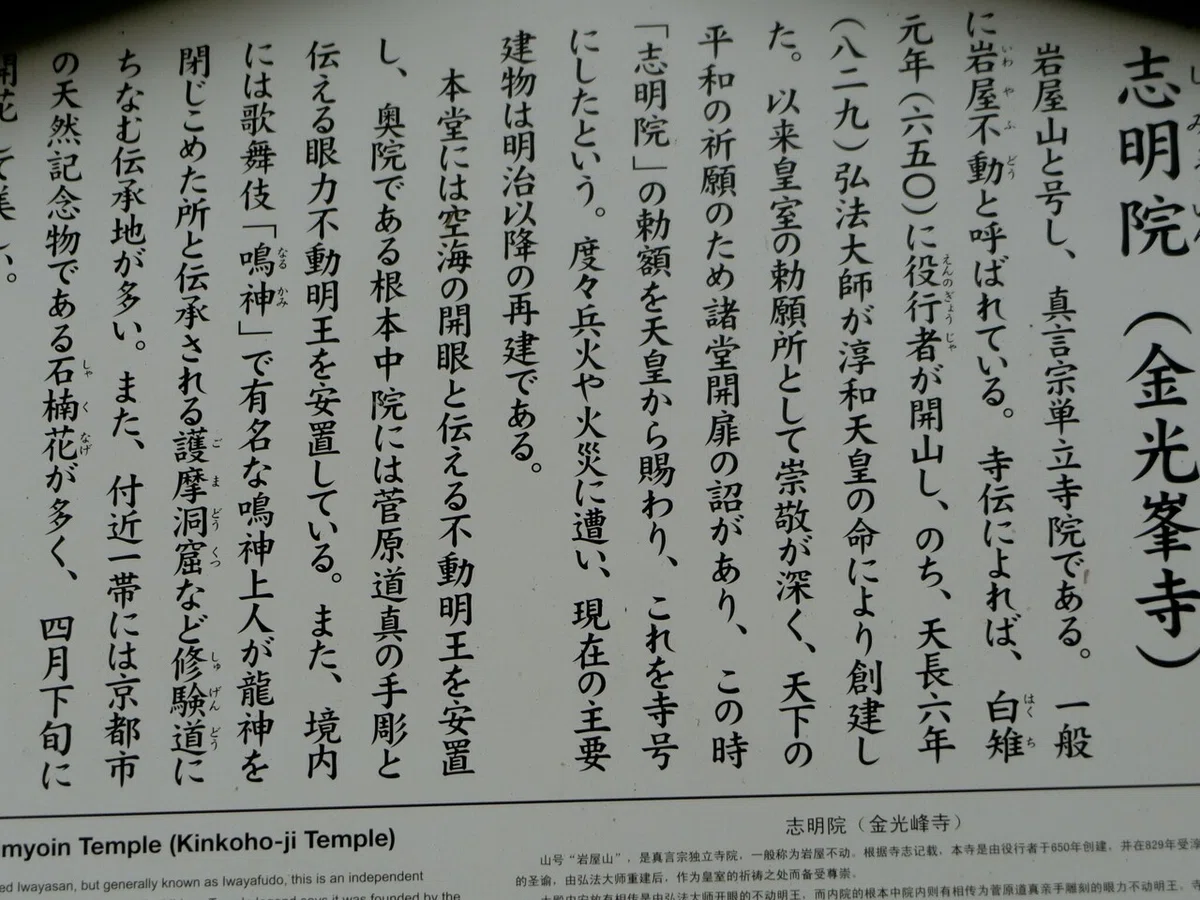 志明院（金光峯寺）
岩屋山と号し、真言宗単立寺院である。一般
に岩屋不動と呼ばれている。寺伝によれば、白雉
元年（六五〇）に役行者が開山し、のち、天長六年
（八二九）弘法大師が淳和天皇の命により創建し
た。以来皇室の勅願所として崇敬が深く、天下の
平和の祈願のため諸堂開扉の詔があり、この時
「志明院」の勅額を天皇から賜わり、これを寺号
にしたという。度々兵火や火災に遭い、現在の主要
建物は明治以降の再建である。
本堂には空海の開眼と伝える不動明王を安置
し、奥院である根本中院には菅原道真の手彫と
伝える眼力不動明王を安置している。また、境内
には歌舞伎「鳴神」で有名な鳴神上人が龍神を
閉じこめた所と伝承される護摩洞窟など修験道に
ちなむ伝承地が多い。また、付近一帯には京都市
の天然記念物である石楠花が多く、四月下旬に
開花して美しい。
myoin Temple (Kinkoho-ji Temple)
ed Iwayasan, but generally known as Iwayafudo, this is an independent
says it was founded by the
志明院（金光峰寺）
山号“岩屋山”，是真言宗独立寺院，一般称为岩屋不动。根据寺志记载，本寺是由役行者于650年创建，并在829年受淳
的圣谕，由弘法大师重建后，作为皇室的祈祷之处而备受尊崇。
大殿内安放有相传是由弘法大师开眼的不动明王，而内院的根本中院内则有相传为菅原道真亲手雕刻的眼力不动明王。寺